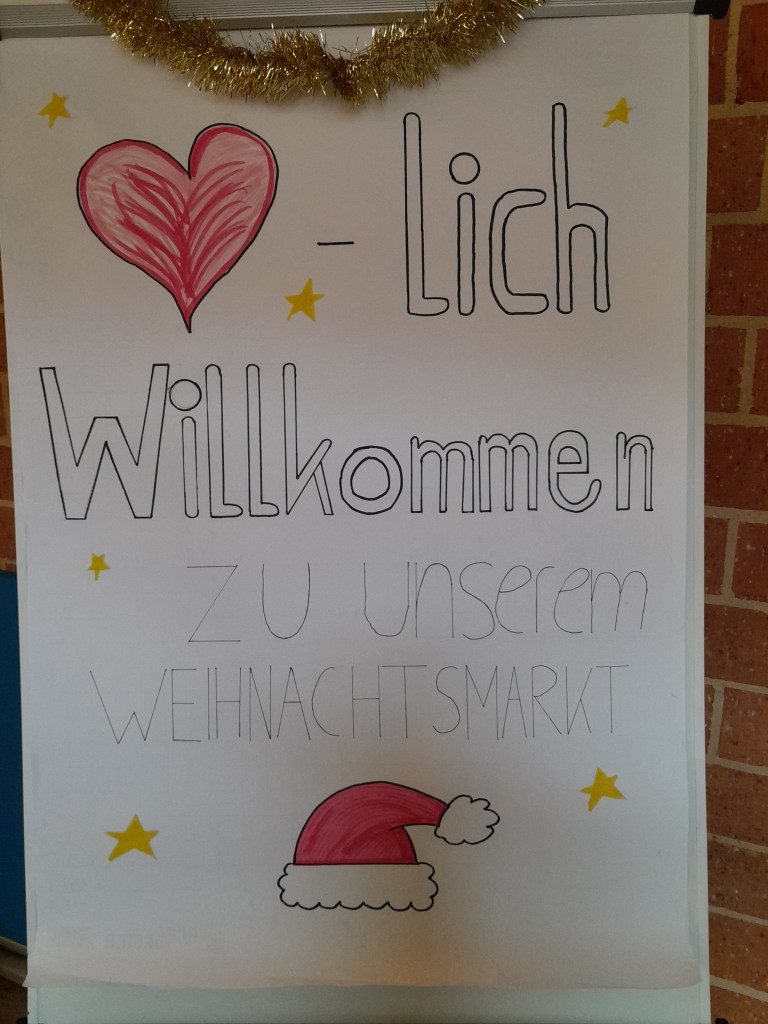 - lich
Willkommen
zu unserem
WEIHNACHTSMARKT